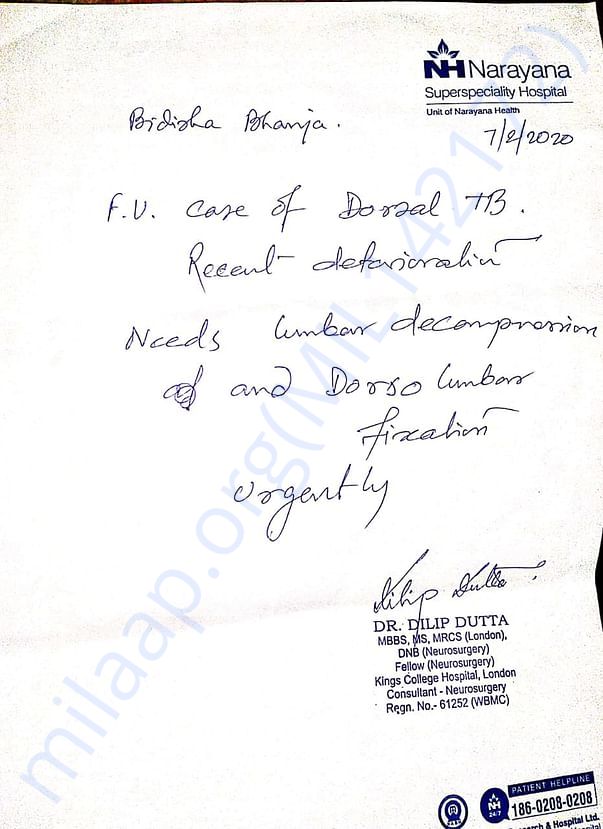 NH Narayana
Superspeciality Hospital
Unit of Narayana Health
Bidisha Bhanja.
7/2/2020
F.U. case of Dorsal TB.
Recent deterioration
Needs lumbar decompression
and Dorso lumbar
fixation
urgently
Dilip Dutta
DR. DILIP DUTTA
MBBS, MS, MRCS (London),
DNB (Neurosurgery)
Fellow (Neurosurgery)
Kings College Hospital, London
Consultant - Neurosurgery
Regn. No.- 61252 (WBMC)
milaap.org(MIL142172)
PATIENT HELPLINE
NH 24/7
186-0208-0208
& Hospital Ltd.